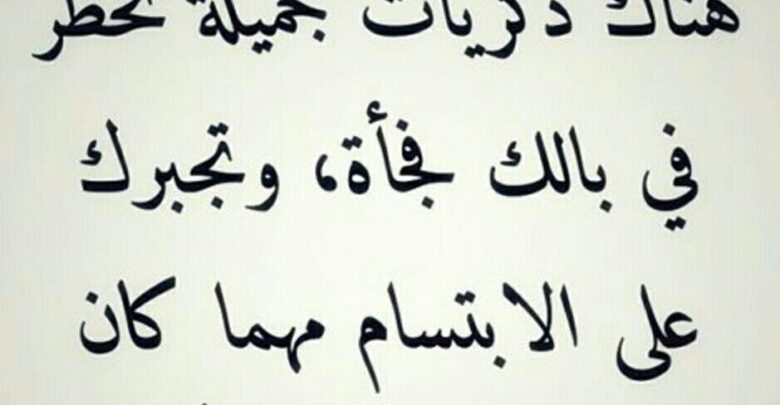 هناك ذكريات جميلة تخطر
في بالك فجأة، وتجبرك
على الابتسام مهما كان